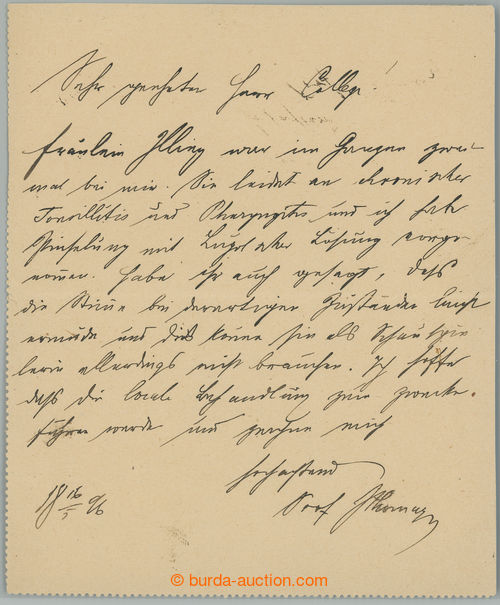 Sehr geehrter Herr College!
Fräulein Illing war im Ganzen zwei-
mal bei mir. Sie leidet an chronischer
Tonsillitis und Pharyngitis und ich habe
Pinselung mit Lugol'scher Lösung vorge-
nommen. Habe ihr auch gesagt, daß
die Stimme bei derartigen Zuständen leicht
ermüde und dies könne sie als Schauspie-
lerin allerdings nicht brauchen. Ich hoffe
daß die locale Behandlung zum Zwecke
führen werde und zeichne mich
hochachtend
Prof
18 16/5 96
© burda-auction.com